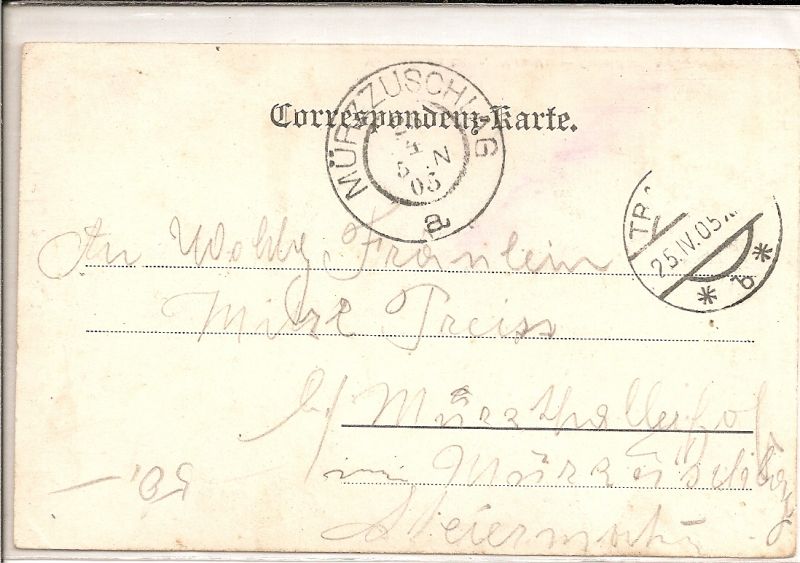 Correspondenz-Karte.
MÜRZZUSCHLAG
05
a
25.IV.05
b
An Wohlg. Fräulein
Mitzl Preiss
b/ Mürzthallerhof
in Mürzzuschlag
Steiermark